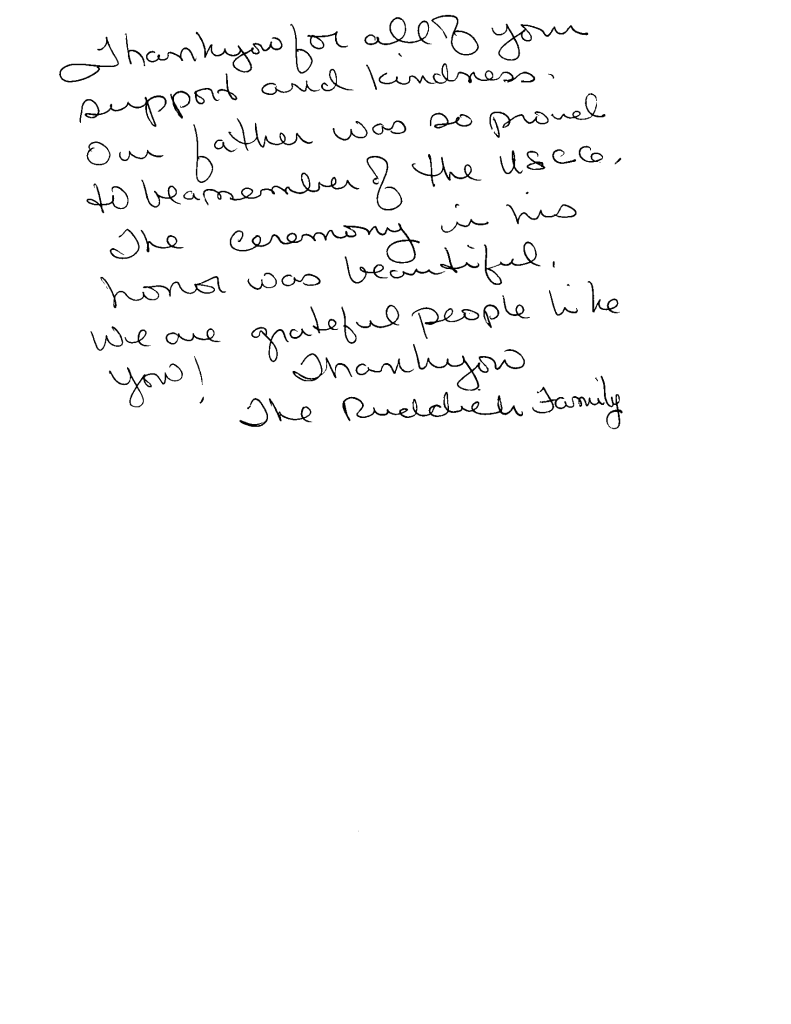 Thankyou for all of your
support and kindness.
Our father was so proud
to be a member of the USCG.
The ceremony in his
honor was beautiful.
We are grateful people like
you! Thankyou
The Family